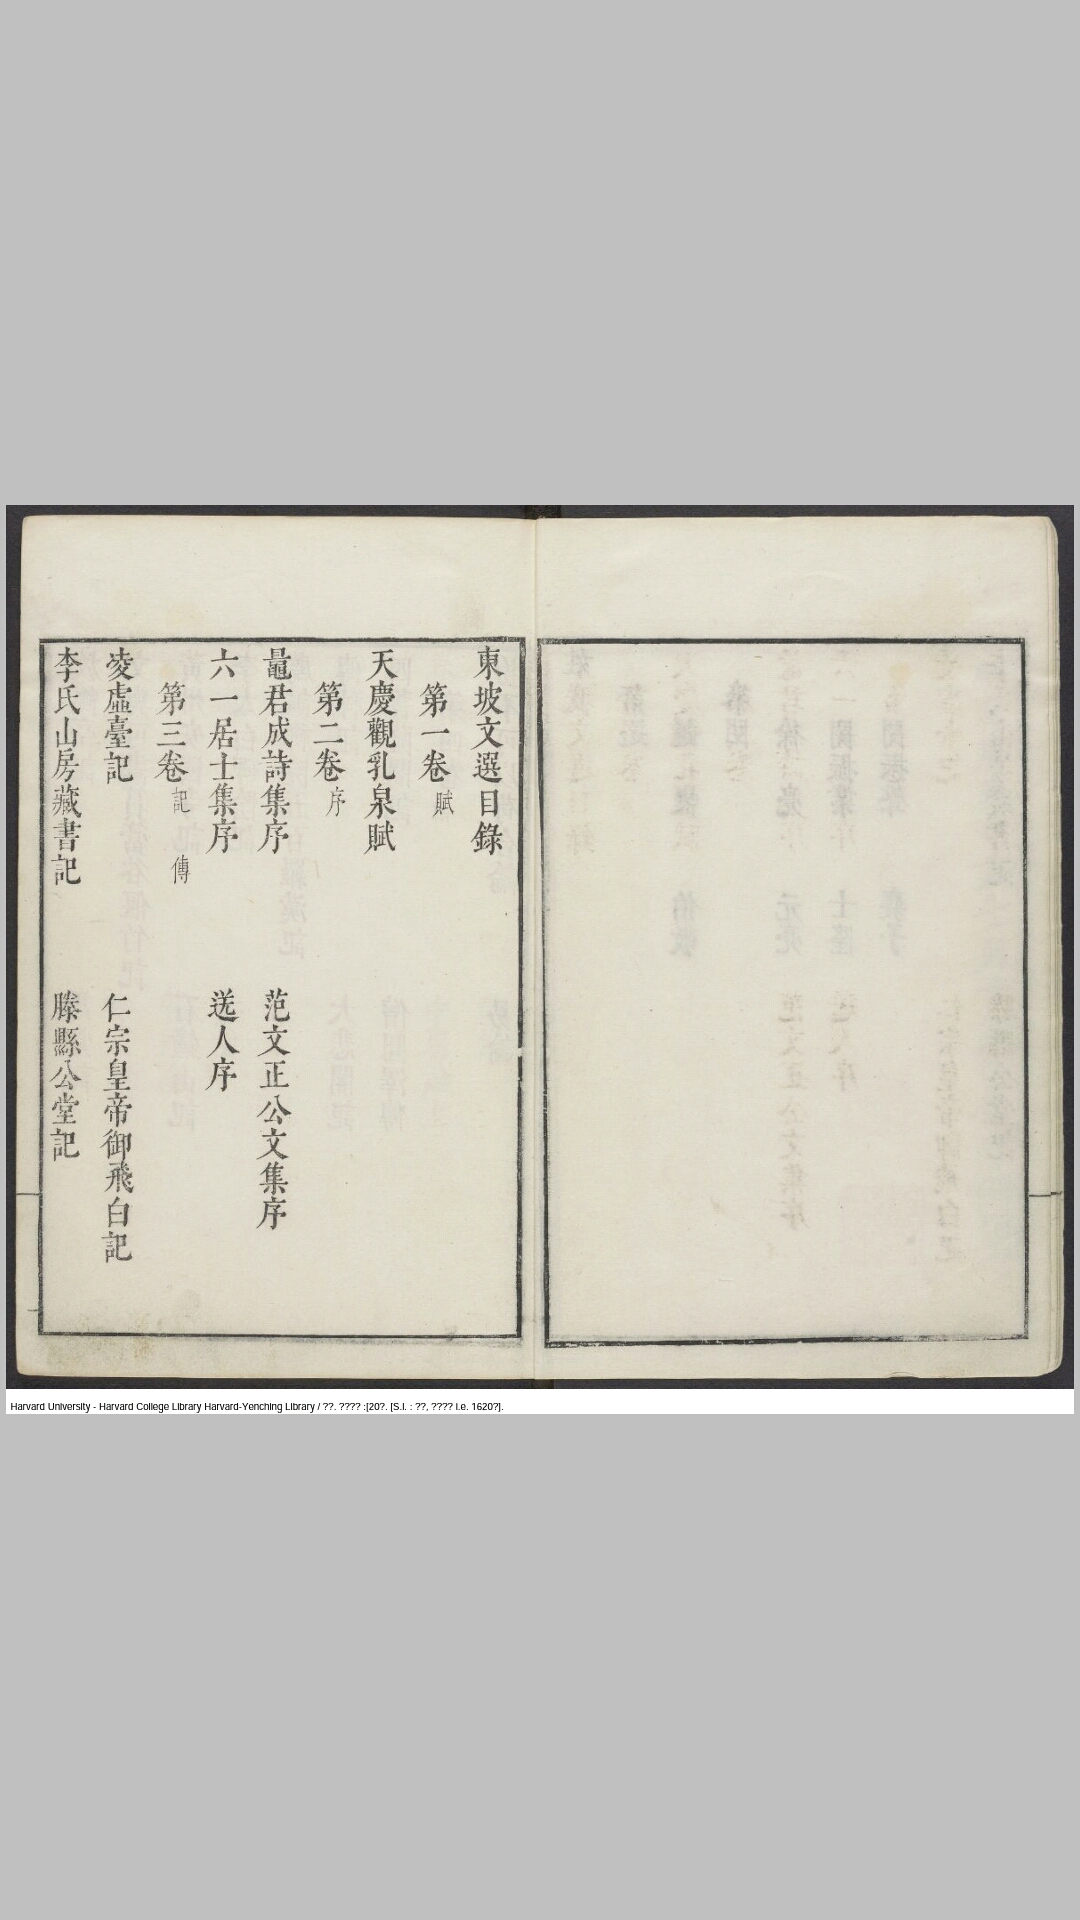 東坡文選目錄
第一卷 賦
天慶觀乳泉賦
第二卷 序
鼂君成詩集序 范文正公文集序
六一居士集序 送人序
第三卷 記 傳
凌虛臺記 仁宗皇帝御飛白記
李氏山房藏書記 滕縣公堂記
Harvard University - Harvard College Library Harvard-Yenching Library / ??. ???? :[20?. [S.l. : ??, ???? i.e. 1620?].